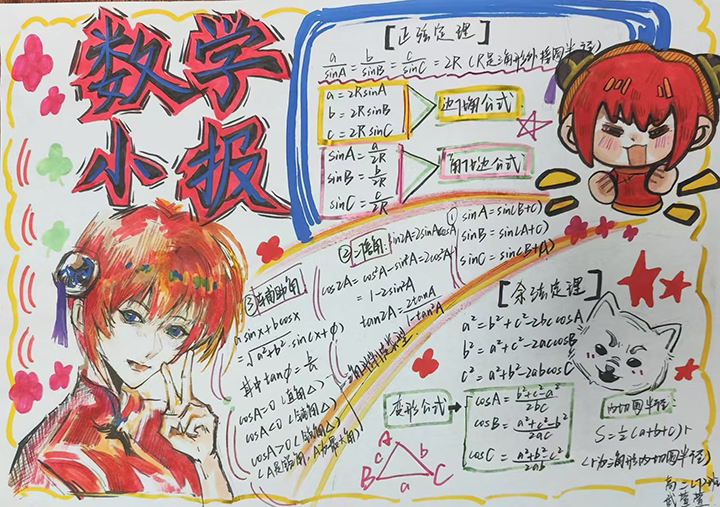 数学
小报
[正弦定理]
a/sinA = b/sinB = c/sinC = 2R (R是三角形外接圆半径)
a = 2RsinA
b = 2RsinB
c = 2RsinC
边化角公式
sinA = a/2R
sinB = b/2R
sinC = c/2R
角化边公式
① sinA = sin(B+C)
sinB = sin(A+C)
sinC = sin(B+A)
② 二倍角: sin2A=2sinAcosA
cos2A = cos²A-sin²A = 2cos²A
= 1-2sin²A
tan2A = 2tanA/1-tan²A
③ 辅助角
asinx+bcosx
= √a²+b² · sin(x+φ)
其中tanφ =
cosA=0 (直角△)
cosA<0 (钝角△)
cosA>0 (锐角△)
(A是锐角, A为最大角)
[余弦定理]
a² = b²+c²-2bccosA
b² = a²+c²-2accosB
c² = a²+b²-2abcosC
变形公式
cosA = b²+c²-a²/2bc
cosB = a²+c²-b²/2ac
cosC = a²+b²-c²/2ab
A
c b
B a C
内切圆半径
S=½(a+b+c)r
(r为三角形内切圆半径)
高二
武萱萱